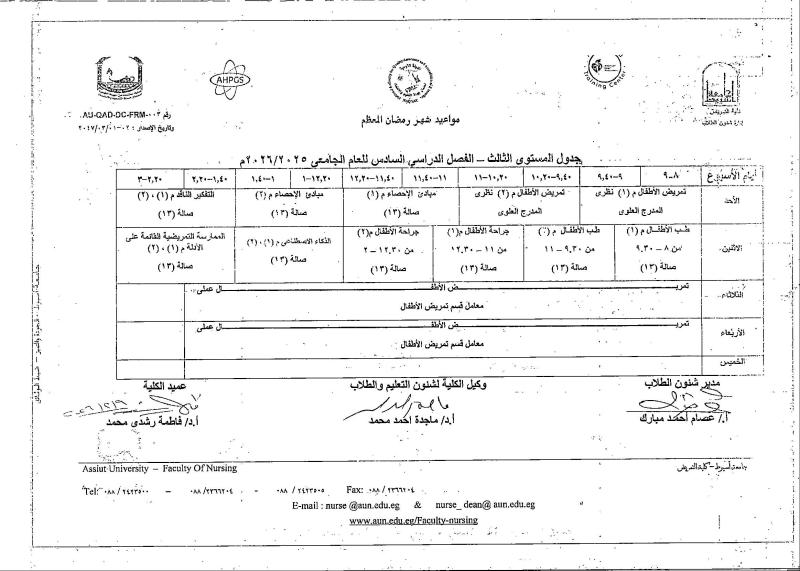 AHPGS
Training Center
كلية التمريض
إدارة شئون الطلاب
رقم AU-QAD-DC-FRM-٠٠٢
وتاريخ الإصدار : ٠٢-٠١/٠٣/٢٠١٧
مواعيد شهر رمضان المعظم
جدول المستوى الثالث – الفصل الدراسي السادس للعام الجامعي ٢٠٢٦/٢٠٢٥م
أيام الأسبوع ٨-٩ ٩-٩,٤٠ ٩,٤٠-١٠,٢٠ ١٠,٢٠-١١ ١١-١١,٤٠ ١١,٤٠-١٢,٢٠ ١٢,٢٠-١ ١-١,٤٠ ١,٤٠-٢,٢٠ ٢,٢٠-٣
الأحد
تمريض الأطفال م (١) نظرى
المدرج العلوى
تمريض الأطفال م (٢) نظرى
المدرج العلوى
مبادئ الإحصاء م (١)
صالة (١٣)
مبادئ الإحصاء م (٢)
صالة (١٣)
التفكير الناقد م (١) ، (٢)
صالة (١٣)
الاثنين
طب الأطفال م (١)
من ٨ – ٩,٣٠
صالة (١٣)
طب الأطفال م (٢)
من ٩,٣٠ – ١١
صالة (١٣)
جراحة الأطفال م(١)
من ١١ – ١٢,٣٠
صالة (١٣)
جراحة الأطفال م(٢)
من ١٢,٣٠ – ٢
صالة (١٣)
الذكاء الاصطناعى م (١) ، (٢)
صالة (١٣)
الممارسة التمريضية القائمة على
الأدلة م (١) ، (٢)
صالة (١٣)
الثلاثاء
تمريـــض الأطفـــال عملى
معامل قسم تمريض الأطفال
الأربعاء
تمريـــض الأطفـــال عملى
معامل قسم تمريض الأطفال
الخميس
مدير شئون الطلاب
أ/ عصام أحمد مبارك
وكيل الكلية لشئون التعليم والطلاب
أ.د/ ماجدة احمد محمد
عميد الكلية
أ.د/ فاطمة رشدى محمد
جامعة أسيوط – كلية التمريض
Assiut University – Faculty Of Nursing
Tel: ٠٨٨ / ٢٤٢٣٥٠٠ – ٠٨٨ /٢٣٦٦٢٠٤ - ٠٨٨ / ٢٤٢٣٥٠٥ Fax: ٠٨٨ / ٢٣٦٦٢٠٤
E-mail : nurse @aun.edu.eg & nurse_ dean@ aun.edu.eg
www.aun.edu.eg/Faculty-nursing